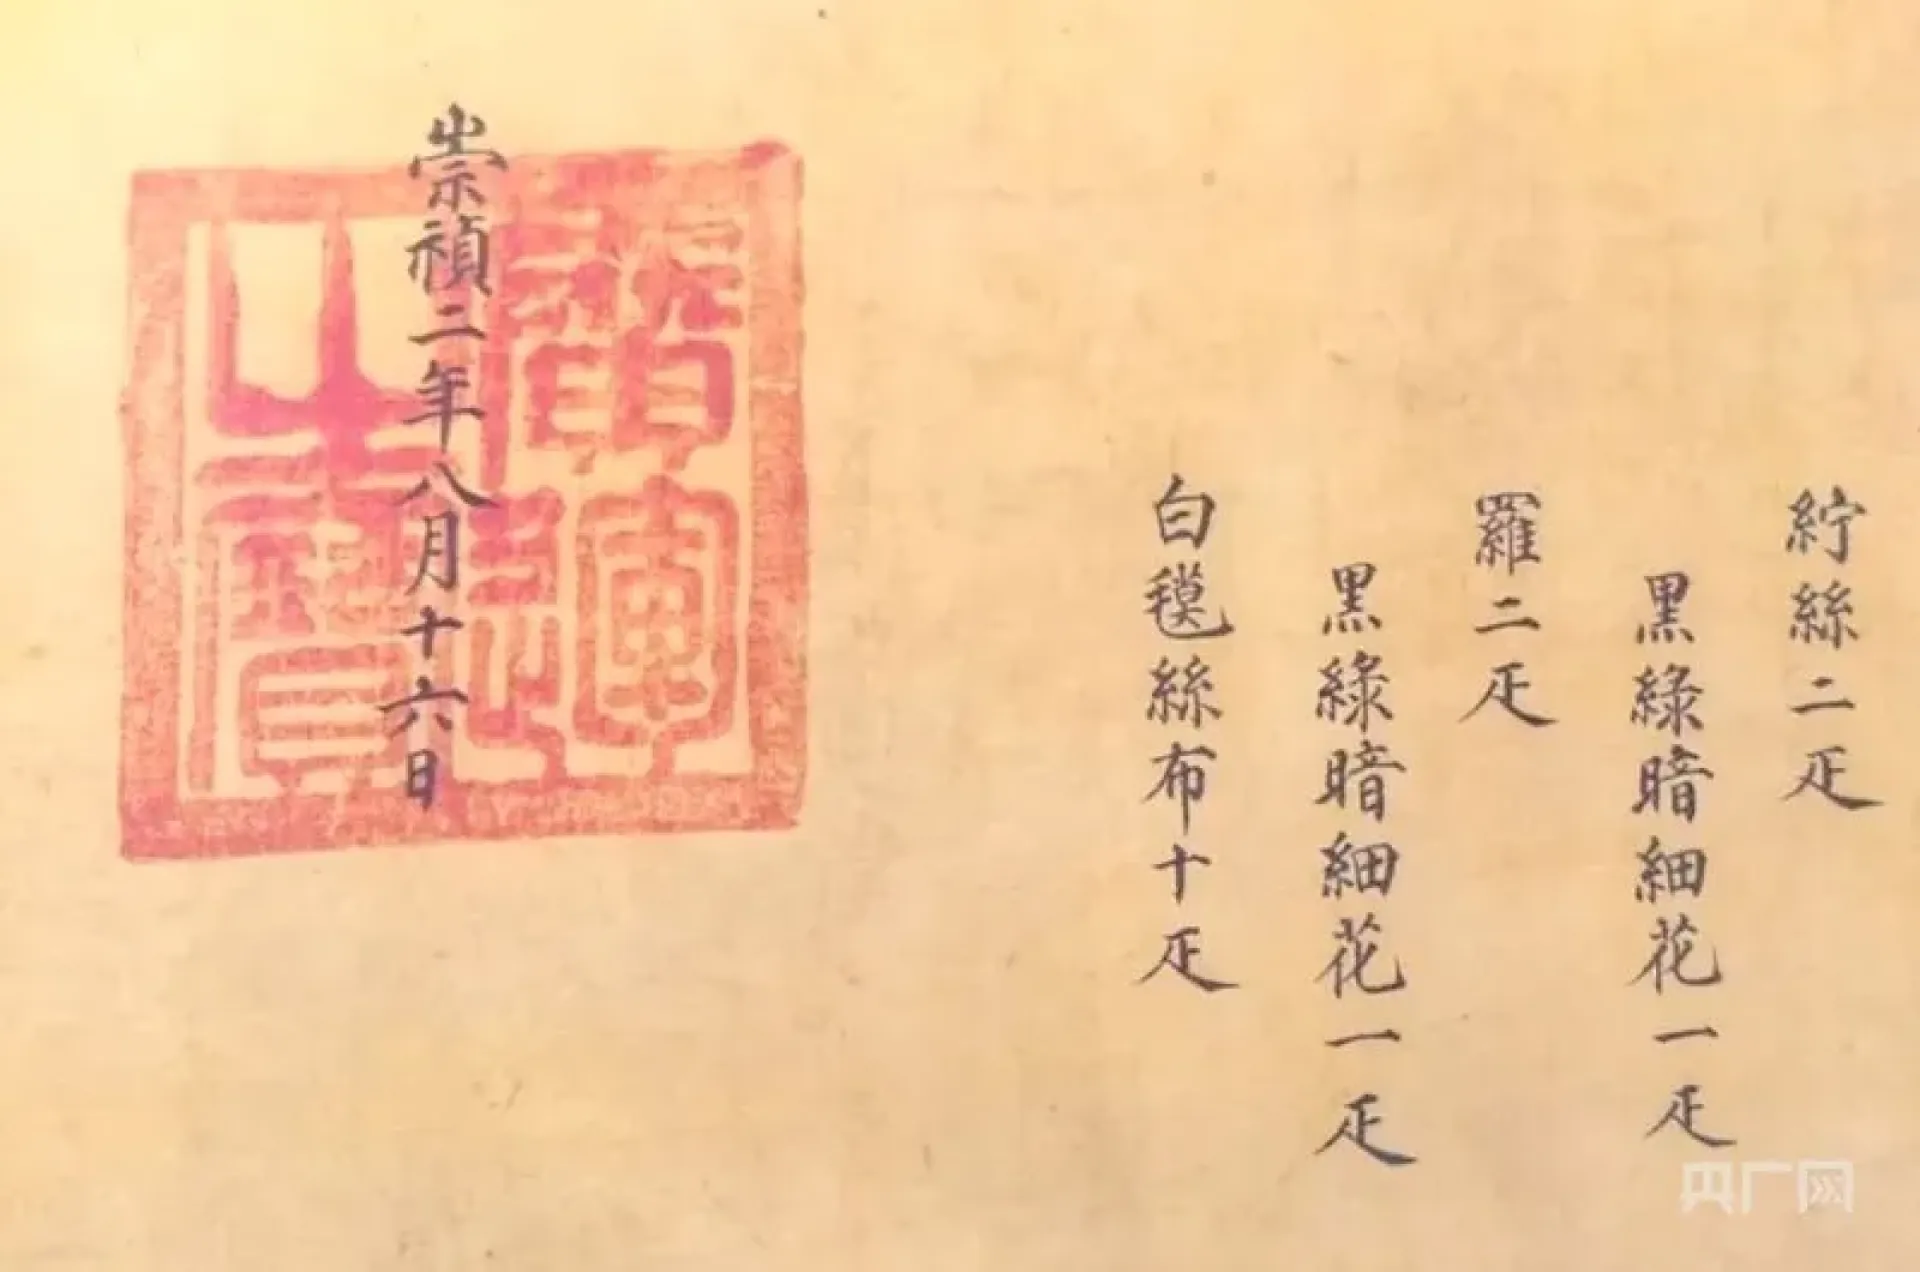 紵絲二疋
黑綠暗細花一疋
羅二疋
黑綠暗細花一疋
白氁絲布十疋
崇禎二年八月十六日
央广网